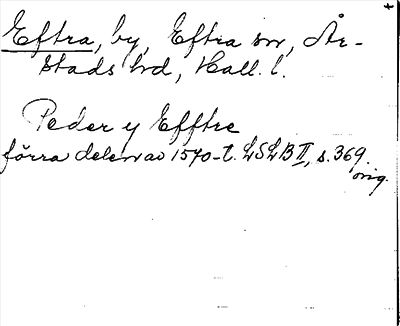 Eftra, by, Eftra sn, År-
stads hd, Hall. l.
Peder y Efftre
förra delen av 1570-t. LSLB II, s. 369.
orig.